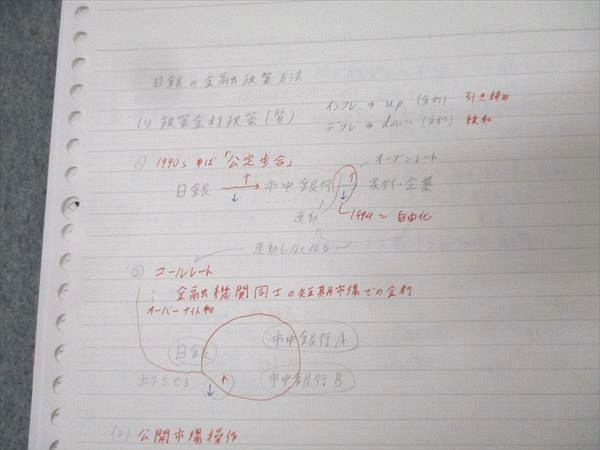 日銀の金融政策方法
(1) 政策金利政策(質) インフレ → up (金利) 引き締め
デフレ → down (金利) 緩和
① 1990s 半ば「公定歩合」 オープンレート
日銀 → 市中銀行 → 家計・企業
連動 1994〜 自由化
連動しなくなる
② コールレート
金融機関同士の短期市場での金利
オーバーナイト物
日銀 市中銀行A
上下させる 市中銀行B
(2) 公開市場操作